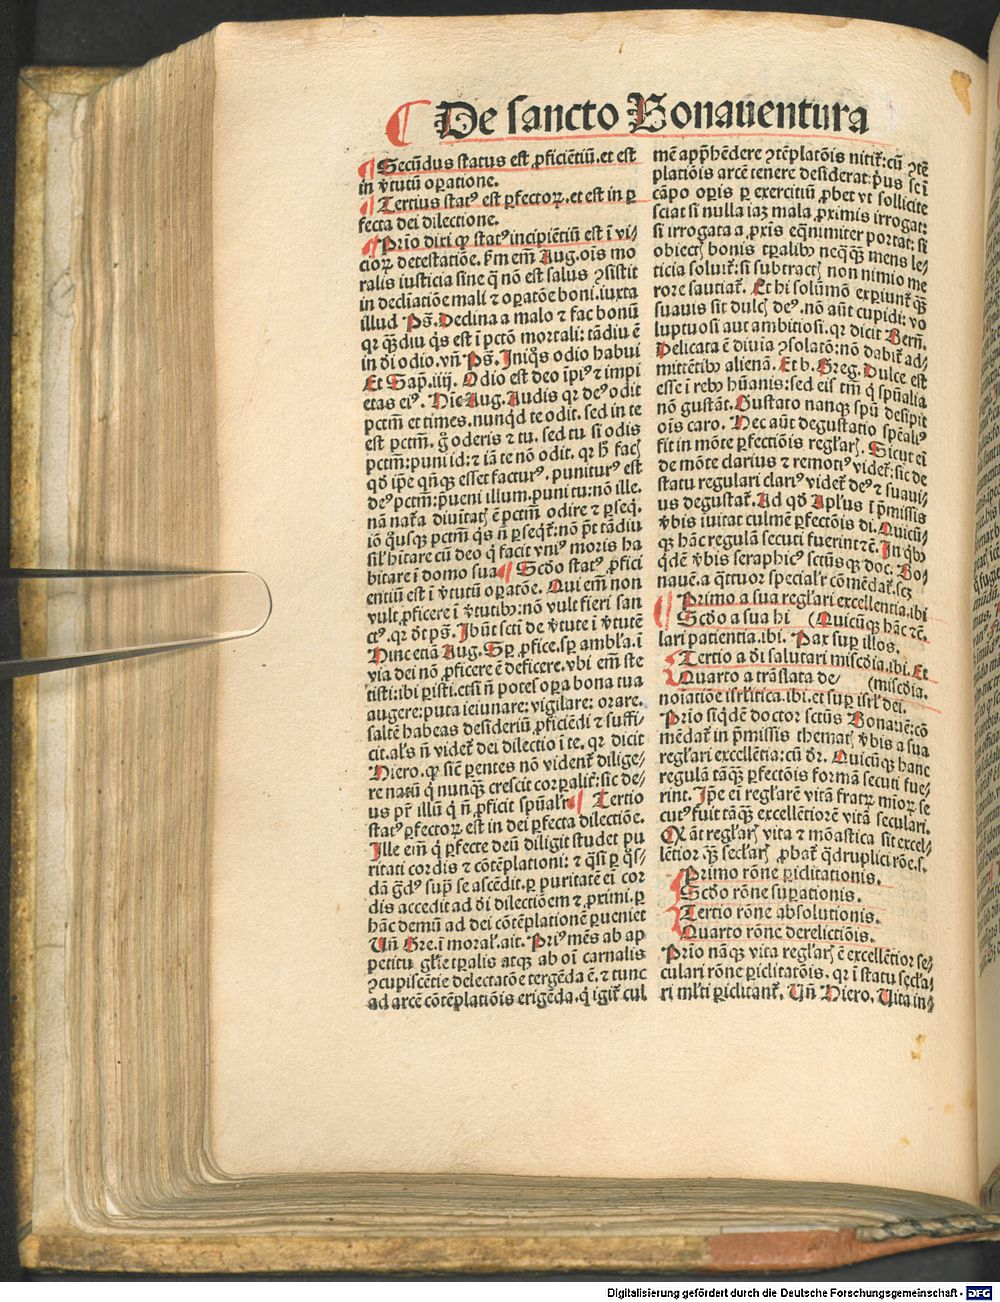 De sancto Bonauentura
¶ Secūdus status est ꝓficiētiū. et est
in v̄tutū oꝑatione.
¶ Tertius statꝰ est ꝑfectoꝝ. et est in ꝑ
fecta dei dilectione.
¶ Prīo dixi ꝙ statꝰ incipiētiū est ī vi⸗
cioꝝ detestatiōe. Pm̄ em̄ Aug. oīs mo
ralis iusticia sine q̄ nō est salus ꝯsistit
in declīatiōe mali ⁊ oꝑatōe boni. iuxta
illud Ps̄. Declina a malo ⁊ fac bonū
qꝛ qͣ̄diu qͥs est ī pctō mortali: tādiu ē
in d̄i odio. vn̄ Ps̄. Iniqͦs odio habui
Et Sap̄. iiij. Odio est deo īpiꝰ ⁊ impi
etas eiꝰ. Hīc Aug. Audis qꝛ deꝰ odit
pctm̄ et times. nunqͥd te odit. sed in te
est pctm̄. g̊ oderis ⁊ tu. sed tu si odis
pctm̄: puni id: ⁊ iā te nō odit. qꝛ h̄ facꝭ
qd̄ ip̄e qn̄qꝫ esset facturꝰ. puniturꝰ est
deꝰ pctm̄: p̄ueni illum. puni tu: nō ille.
nā nat̄a diuītatꝭ ē pctm̄ odire ⁊ ꝑseq̄.
iō qͥusqꝫ pctm̄ qͥs n̄ ꝑseqͥt̄: nō p̄t tādiu
sil̄ hītare cū deo qͥ facit vniꝰ moris ha
bitare ī domo sua ¶ Scd̄o statꝰ ꝓfici
entiū est ī v̄tutū oꝑatōe. Qui em̄ non
vult ꝓficere ī v̄tutibꝰ: nō vult fieri san
ctꝰ. qꝛ d̄t ps̄. Ibūt scti de v̄tute ī v̄tutē
Hinc etiā Aug. Sꝑ ꝓfice. sꝑ ambl̄a. ī
via dei nō ꝓficere ē deficere. vbi em̄ ste
tisti: ibi ꝑisti. etsi n̄ potes oꝑa bona tua
augere: puta ieiunare: vigilare: orare.
saltē habeas desideriū ꝓficiēdi ⁊ suffi⸗
cit. al̄s n̄ videt̄ dei dilectio ī te. qꝛ dicit
Hiero. ꝙ sic̄ ꝑentes nō vident̄ dilige⸗
re natū qͥ nunqꝫ crescit corꝑalit̄: sic de⸗
us pr̄ illū qͥ n̄ ꝓficit sp̄ual̄r ¶ Tertio
statꝰ ꝑfectoꝝ est in dei ꝑfecta dilectiōe.
Ille em̄ qͥ ꝑfecte deū diligit studet pu
ritati cordis ⁊ cōtēplationi: ⁊ qͣsi ꝑ qͦs⸗
dā g̊dꝰ supͣ se ascēdit. ꝑ puritatē ei cor
dis accedit ad d̄i dilectiōem ⁊ ꝓximi. ꝑ
hāc demū ad dei cōtēplationē ꝑueniet
Vn̄ Gre. ī moral̄. ait. Priꝰ mēs ab ap
petitu gl̄ie tꝑalis atqꝫ ab oī carnalis
ꝯcupiscētie delectatōe tergēda ē. ⁊ tunc
ad arcē cōtēplatiōis erigēda. qͥ igit̄ cul
mē app̄hēdere ꝯtēplatōis nitit̄: cū ꝯtē
platiōis arcē tenere desiderat: p̄us se ī
cāpo oꝑis ꝑ exercitiū ꝓbet vt sollicite
sciat si nulla iaꝫ mala ꝓximis irrogat:
si irrogata a ꝓxis eq̄nimiter portat: si
obiectꝭ bonis tꝑalibꝰ neqͣqꝫ mens le⸗
ticia soluit̄: si subtractꝭ non nimio me
rore sautiat̄. Et hi solūmō exꝑiunt̄ qͣꝫ
suauis sit dulcꝭ deꝰ. nō aūt cupidi: vo
luptuosi aut ambitiosi. qꝛ dicit Bern̄.
Delicata ē diuīa ꝯsolatō: nō dabit̄ ad⸗
mittētibꝰ alienā. Et b. Greg. Dulce est
esse ī rebꝰ hūanis: sed eis tm̄ qͥ sp̄ualia
nō gustāt. Gustato nanqꝫ sp̄u desipit
oīs caro. Hec aūt degustatio sp̄ēaliꝰ
fit in mōte ꝑfectiōis regl̄arꝭ. Sicut ei
de mōte clarius ⁊ remotiꝰ videt̄: sic de
statu regulari clariꝰ videt̄ deꝰ ⁊ suaui⸗
us degustat̄. Ad qd̄ Apl̄us ī p̄missis
v̄bis īuitat culmē ꝑfectōis d̄i. Quicū⸗
qꝫ hāc regulā secuti fuerint ⁊c̄. In qͥbꝰ
qͥdē v̄bis seraphicꝰ sctūsqꝫ doc. Bo⸗
nauē. a qͣttuor special̄r cōmēdat̄. scꝫ
¶ Primo a sua regl̄ari excellentia. ibi
Scd̄o a sua hi (Quicūqꝫ hāc ⁊c̄.
lari patientia. ibi. Pax suꝑ illos.
Tertio a d̄i salutari miscd̄ia. ibi. Et
Quarto a trāslata de⸗ (miscd̄ia.
noīatiōe isrl̄itica. ibi. et suꝑ isrl̄ dei.
Prīo siqͥdē doctor sctūs Bonauē: cō
mēdat̄ in p̄missis thematꝭ v̄bis a sua
regl̄ari excellētia: cū dr̄. Quicūqꝫ hanc
regulā tāqͣꝫ ꝑfectōis formā secuti fue⸗
rint. Ip̄e ei regl̄arē vitā fratꝝ mioꝝ se
cutꝰ fuit tāqͣꝫ excellētiorē vitā seculari.
Qꝛ āt regl̄arꝭ vita ⁊ mōastica sit excel⸗
lētior qͣꝫ secl̄arꝭ ꝓbat̄ qͣdruplici rōe. s.
Primo rōne ꝑiclitationis.
Scd̄o rōne suꝑationis.
Tertio rōne absolutionis.
Quarto rōne derelictiōis.
Prīo nāqꝫ vita regl̄arꝭ ē excellētior se⸗
culari rōne ꝑiclitatōis. qꝛ ī statu secl̄a⸗
ri ml̄ti ꝑiclitant̄. Vn̄ Hiero. Vita in⸗
Digitalisierung gefördert durch die Deutsche Forschungsgemeinschaft - DFG